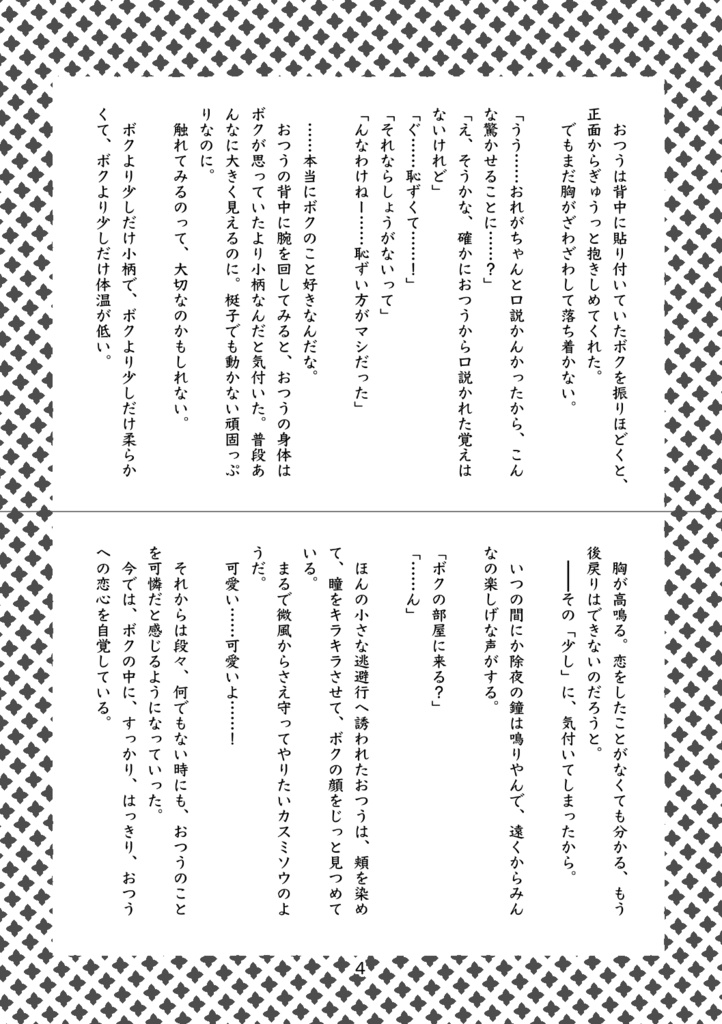 おつうは背中に貼り付いていたボクを振りほどくと、
正面からぎゅうっと抱きしめてくれた。
でもまだ胸がざわざわして落ち着かない。
「うう……おれがちゃんと口説かんかったから、こん
な驚かせることに……？」
「え、そうかな、確かにおつうから口説かれた覚えは
ないけれど」
「ぐ……恥ずくて……！」
「それならしょうがないって」
「んなわけねー……恥ずい方がマシだった」
……本当にボクのこと好きなんだな。
おつうの背中に腕を回してみると、おつうの身体は
ボクが思っていたより小柄なんだと気付いた。普段あ
んなに大きく見えるのに。梃子でも動かない頑固っぷ
りなのに。
触れてみるのって、大切なのかもしれない。
ボクより少しだけ小柄で、ボクより少しだけ柔らか
くて、ボクより少しだけ体温が低い。
胸が高鳴る。恋をしたことがなくても分かる、もう
後戻りはできないのだろうと。
――その「少し」に、気付いてしまったから。
いつの間にか除夜の鐘は鳴りやんで、遠くからみん
なの楽しげな声がする。
「ボクの部屋に来る？」
「……ん」
ほんの小さな逃避行へ誘われたおつうは、頬を染め
て、瞳をキラキラさせて、ボクの顔をじっと見つめて
いる。
まるで微風からさえ守ってやりたいカスミソウのよ
うだ。
可愛い……可愛いよ……！
それからは段々、何でもない時にも、おつうのこと
を可憐だと感じるようになっていった。
今では、ボクの中に、すっかり、はっきり、おつう
への恋心を自覚している。
4